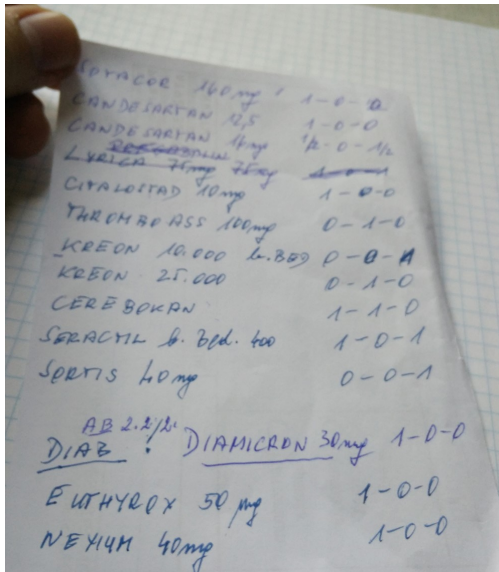 SOTACOR 160mg 1-0-0
CANDESARTAN 12,5 1-0-0
CANDESARTAN 16mg 1/2-0-1/2
PREGABALIN
LYRICA 75mg 75mg 1-0-1
CITALOSTAD 10mg 1-0-0
THROMBO ASS 100mg 0-1-0
KREON 10.000 b. BED 0-0-1
KREON 25.000 0-1-0
CEREBOKAN 1-1-0
SERACTIL b. Bed. 400 1-0-1
SORTIS 40mg 0-0-1
AB 2.2.
DIAB: DIAMICRON 30mg 1-0-0
EUTHYROX 50 µg 1-0-0
NEXIUM 40mg 1-0-0